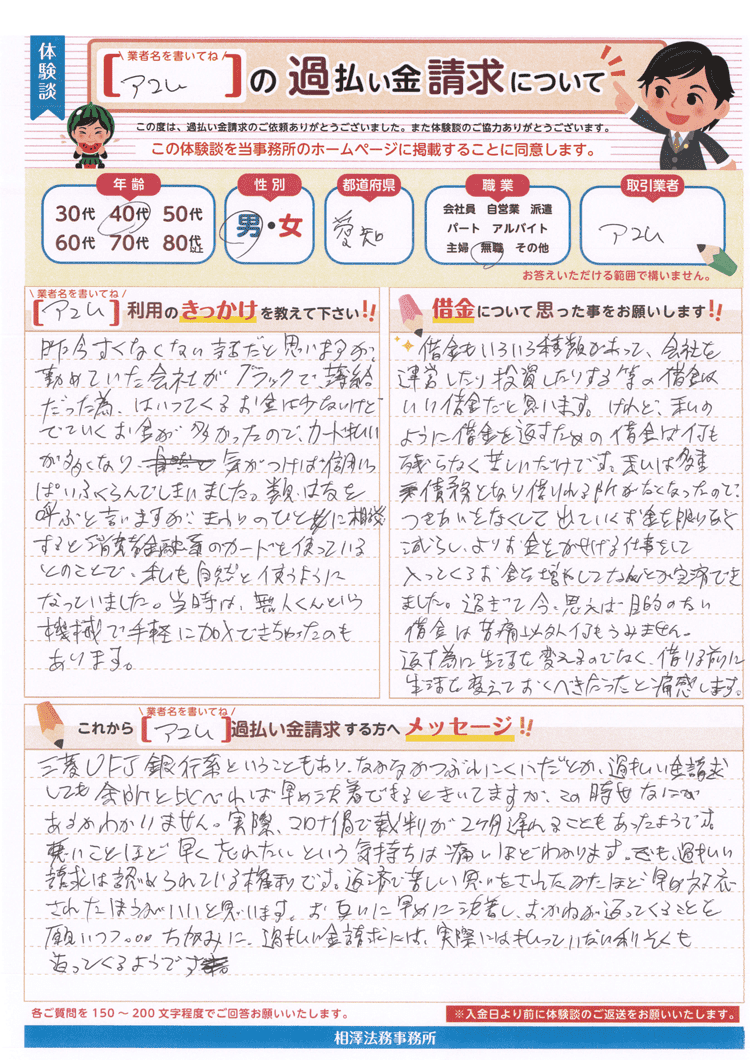 体験談
業者名を書いてね
[アコム]の過払い金請求について
この度は、過払い金請求のご依頼ありがとうございました。また体験談のご協力ありがとうございます。
この体験談を当事務所のホームページに掲載することに同意します。
年齢
30代 40代 50代
60代 70代 80代以上
性別
男・女
都道府県
愛知
職業
会社員 自営業 派遣
パート アルバイト
主婦 無職 その他
取引業者
アコム
お答えいただける範囲で構いません。
業者名を書いてね
[アコム]利用のきっかけを教えて下さい!!
昨今すくなくない話だと思いますが、
勤めていた会社がブラックで、薄給
だった為、はいってくるお金は少ないけど
でていくお金が多かったので、カード払い
が多くなり、気がつけば借金いっ
ぱいふくらんでしまいました。類は友を
呼ぶと言いますが、まわりのひと達に相談
すると消費者金融系のカードを使っている
とのことで、私も自然と使うように
なっていました。当時は、無人くんという
機械で手軽に加入できちゃったのも
あります。
借金について思った事をお願いします!!
借金もいろいろ種類があって、会社を
運営したり投資したりする等の借金は
いい借金だと思います。けれど、私の
ように借金を返すための借金は何も
残らなく苦しいだけです。私は多重
債務となり借りれる所がなくなったので、
つきあいをなくして出ていくお金を限りなく
減らし、よりお金をかせげる仕事をして
入ってくるお金を増やしてなんとか完済でき
ました。過ぎて今、思えば目的のない
借金は苦痛以外何もうみません。
返す為に生活を変えるのでなく、借りる前に
生活を変えておくべきだったと痛感します。
業者名を書いてね
これから[アコム]過払い金請求する方へメッセージ!!
三菱UFJ銀行系ということもあり、なかなかつぶれにくいだとか、過払い金請求
しても余所と比べれば早め決着できるときいてますが、この時世なにが
あるかわかりません。実際、コロナ禍で裁判が2ヶ月遅れることもあったようです。
悪いことほど早く忘れたいという気持ちは痛いほどわかります。でも、過払い
請求は認められている権利です。返済で苦しい思いをされたかたほど早め対応
されたほうがいいと思います。お互いに早めに決着し、おかねが返ってくることを
願いつつ。。。ちなみに、過払い金請求には、実際には払っていない利そくも
返ってくるようです。
各ご質問を150～200文字程度でご回答お願いいたします。
※入金日より前に体験談のご返送をお願いいたします。
相澤法務事務所